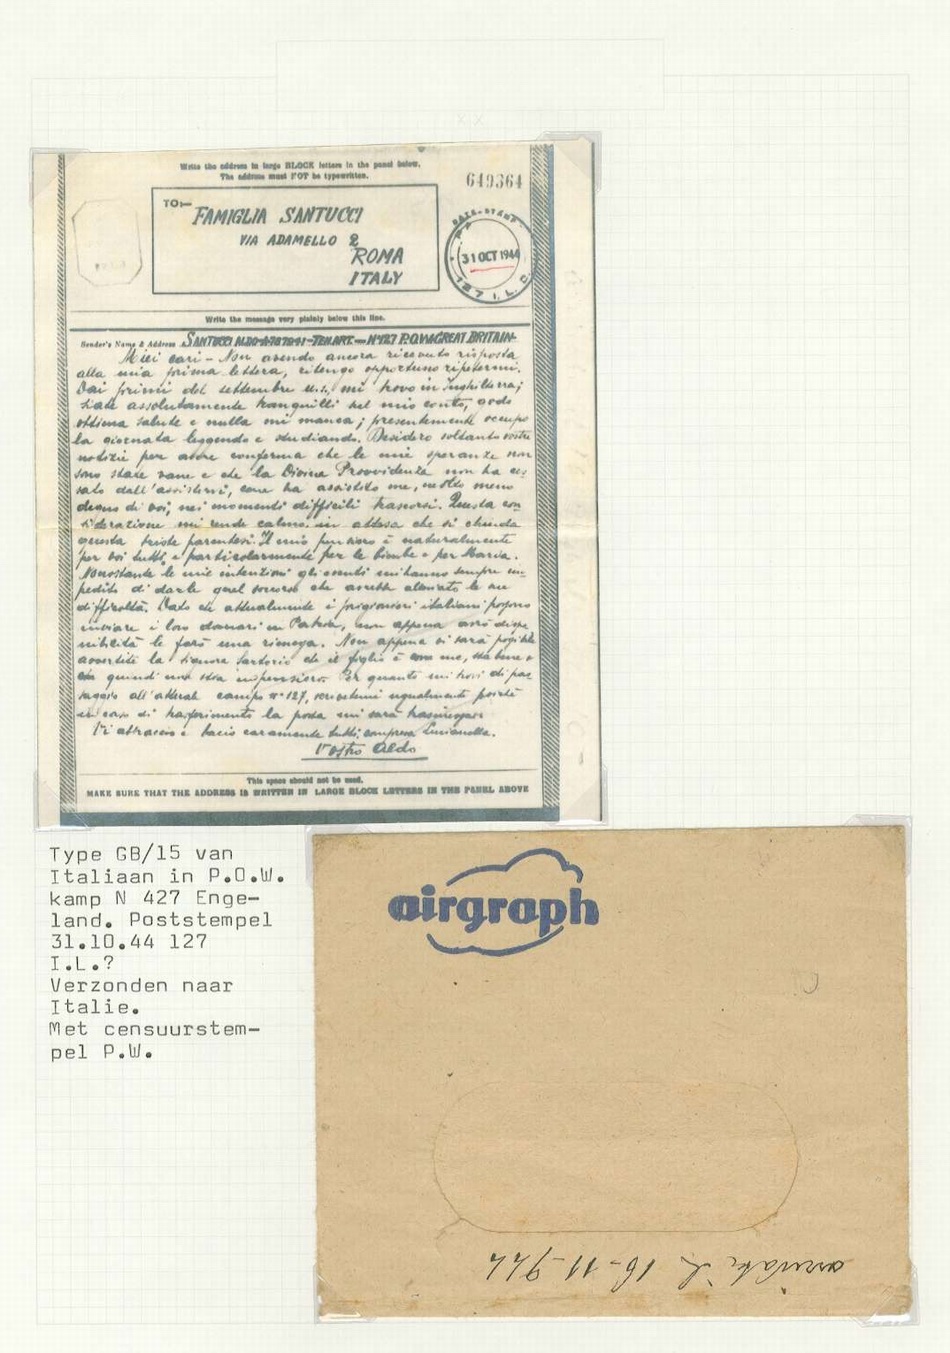 Write the address in large BLOCK letters in the panel below.
The address must NOT be typewritten.
649364
TO:—
FAMIGLIA SANTUCCI
VIA ADAMELLO 2
ROMA
ITALY
DATE-STAMP
31 OCT 1944
127 I.L.C.
Write the message very plainly below this line.
Sender's Name & Address SANTUCCI ALDO TEN.ART. N°127 P.O.W. GREAT BRITAIN
Miei cari - Non avendo ancora ricevuto risposta
alla mia prima lettera, ritengo opportuno ripetermi.
Dai primi del settembre u.s., mi trovo in Inghilterra;
state assolutamente tranquilli sul mio conto, godo
ottima salute e nulla mi manca; presentemente occupo
la giornata leggendo e studiando. Desidero soltanto vostre
notizie per avere conferma che le mie speranze non
sono state vane e che la Divina Provvidenza non ha ces-
sato dall'assistervi, come ha assistito me, molto meno
degno di voi, nei momenti difficili trascorsi. Questa con
siderazione mi rende calmo in attesa che si chiuda
questa triste parentesi. Il mio pensiero è naturalmente
per voi tutti e particolarmente per le bimbe e per Maria.
Nonostante le mie intenzioni gli eventi mi hanno sempre im-
pedito di darle quel soccorso che avrebbe alleviato le sue
difficoltà. Dato che attualmente i prigionieri italiani possono
inviare i loro danari in Patria, non appena avrò dispo
nibilità le farò una rimessa. Non appena vi sarà possibile
avvertite la signora Sartorio che il figlio è con me, sta bene e
quindi non stia in pensiero. Per quanto mi trovi di pas
saggio all'attuale campo n° 127, scrivetemi ugualmente poichè
in caso di trasferimento la posta mi sarà trasmessa.
Vi abbraccio e bacio caramente tutti, compresa Lucianella.
Vostro Aldo
This space should not be used.
MAKE SURE THAT THE ADDRESS IS WRITTEN IN LARGE BLOCK LETTERS IN THE PANEL ABOVE
Type GB/15 van
Italiaan in P.O.W.
kamp N 427 Enge-
land. Poststempel
31.10.44 127
I.L.?
Verzonden naar
Italie.
Met censuurstem-
pel P.W.
airgraph
16-11-944